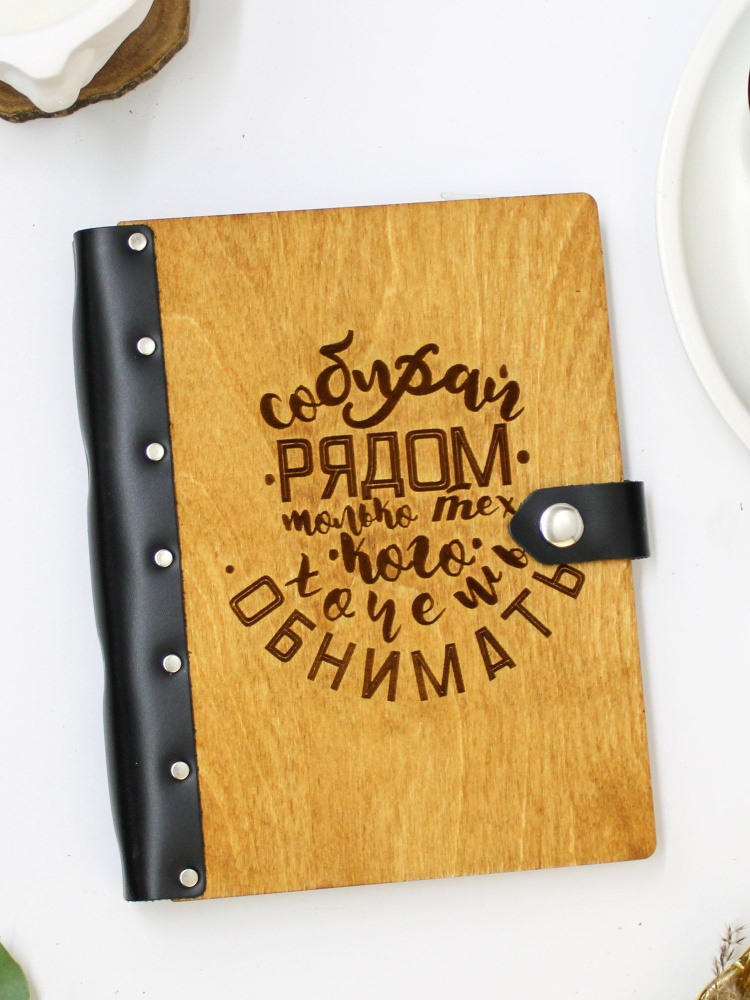 собирай
РЯДОМ
только тех
кого
хочешь
ОБНИМАТЬ